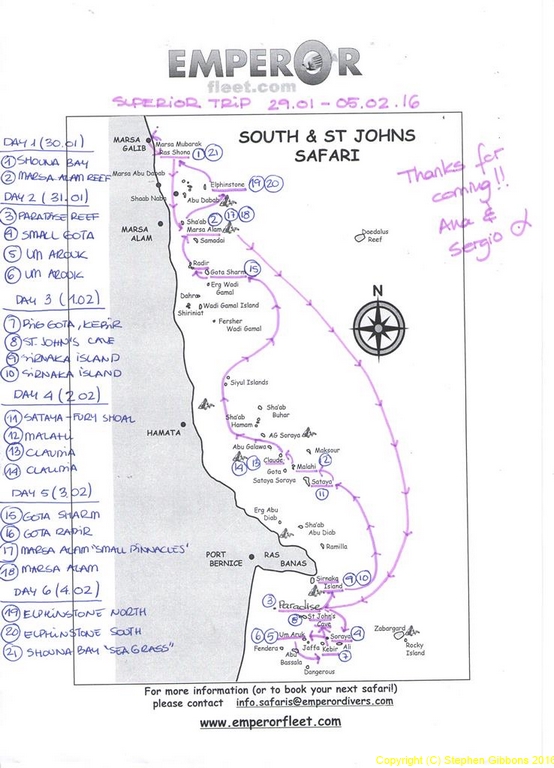 EMPEROR
fleet.com
SUPERIOR TRIP 29.01 - 05.02.16
SOUTH & ST JOHNS
SAFARI
Thanks for
coming!!
Ana &
Sergio
DAY 1 (30.01)
1 SHOUNA BAY
2 MARSA ALAM REEF
DAY 2 (31.01)
3 PARADISE REEF
4 SMALL GOTA
5 UM AROUK
6 UM AROUK
DAY 3 (1.02)
7 BIG GOTA, KEBIR
8 ST JOHN'S CAVE
9 SIRNAKA ISLAND
10 SIRNAKA ISLAND
DAY 4 (2.02)
11 SATAYA - FURY SHOAL
12 MALAHI
13 CLAUDIA
14 CLAUDIA
DAY 5 (3.02)
15 GOTA SHARM
16 GOTA RADIR
17 MARSA ALAM "SMALL PINNACLES"
18 MARSA ALAM
DAY 6 (4.02)
19 ELPHINSTONE NORTH
20 ELPHINSTONE SOUTH
21 SHOUNA BAY "SEA GRASS"
MARSA
GALIB
Marsa Mubarak
Ras Shona 1 21
Marsa Abu Dabab
Elphinstone 19 20
Shaab Naba
Abu Dabab
MARSA
ALAM
Sha'ab
Marsa Alam
2 17 18
Samadai
Daedalus
Reef
Radir
Gota Sharm 15
Erg Wadi
Gamal
Dahra
Wadi Gamal Island
Shiriniat
Fersher
Wadi Gamal
N
Siyul Islands
HAMATA
Sha'ab
Buhar
Sha'ab
Hamam
AG Soraya
Abu Galawa
Maksour
Claude
14 13
Malahi
12
Gota
Sataya Soraya
Sataya
11
Erg Abu
Diab
Sha'ab
Abu Diab
Ramilla
PORT
BERNICE
RAS
BANAS
Sirnaka
Island
9 10
3 Paradise
8 St John's
Cave
6 5 Um Aruk
Soraya 4
Zabargad
Rocky
Island
Fendera
Abu
Bassala
Jaffa
Kebir
Ali
7
Dangerous
For more information (or to book your next safari!)
please contact info.safaris@emperordivers.com
www.emperorfleet.com
Copyright (C) Stephen Gibbons 2016